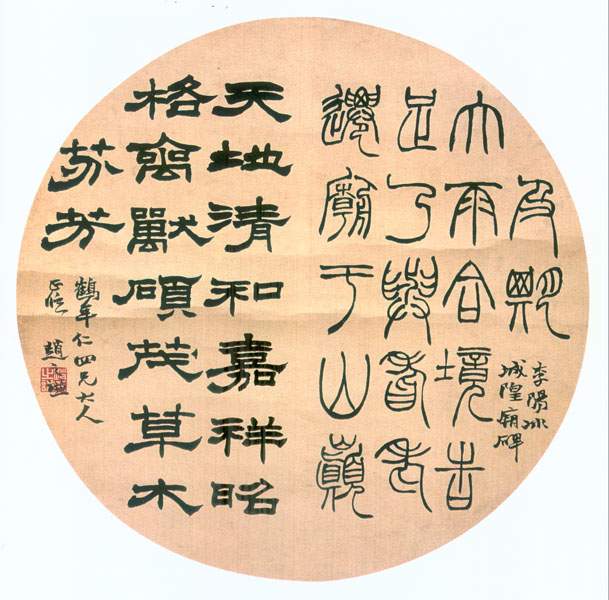 及期
大雨合境告
足乃與耆老
遷廟于山巔
李陽冰
城隍廟碑
天地清和嘉祥昭
格禽獸碩茂草木
芬芳
鶴年仁四兄大人
正腕 趙之謙